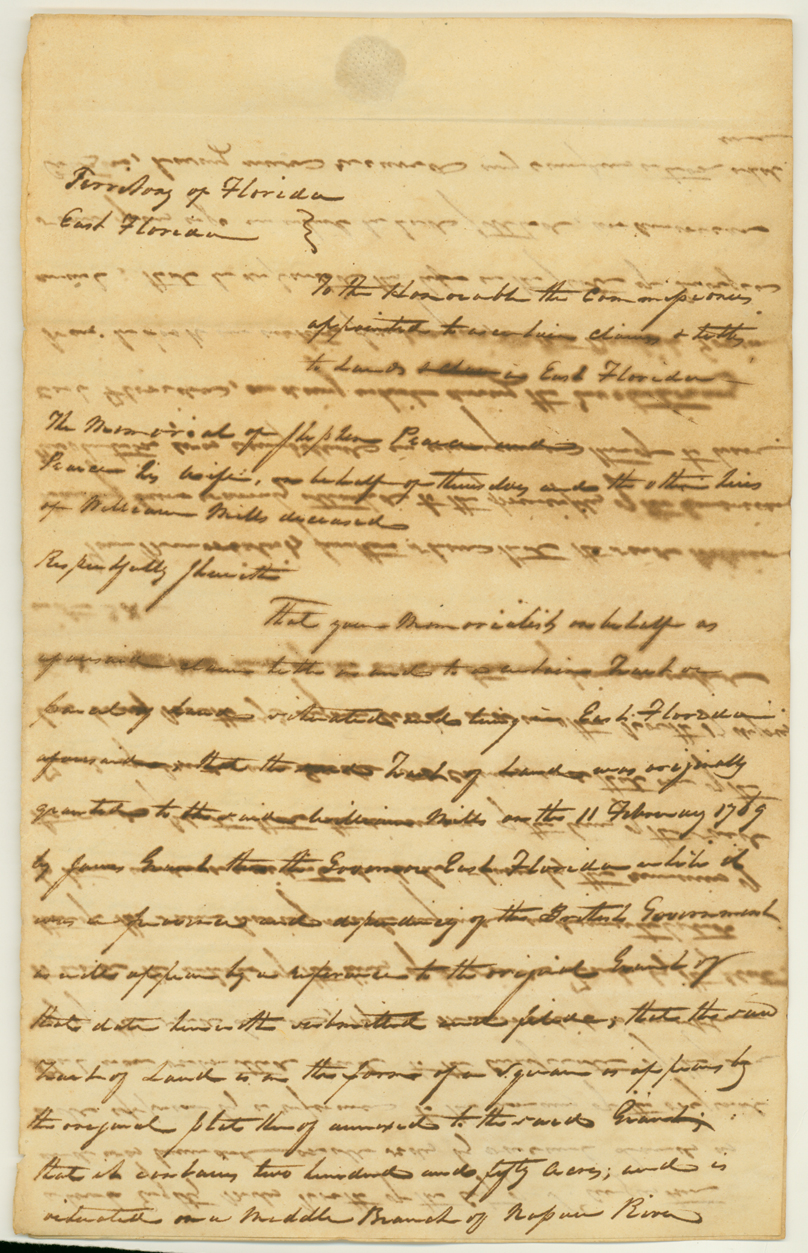 Territory of Florida
East Florida
To the Honorable the Commissioners
appointed to ascertain claims & titles
to Lands in East Florida
The Memorial of Stephen Pearce and
Pearce his wife, in behalf of themselves and the other heirs
of William Mills deceased
Respectfully Sheweth
That your Memorialists on behalf as
aforesaid claim title in and to a certain Tract or
parcel of land situated and lying in East Florida
aforesaid, that the said Tract of Land was originally
granted to the said William Mills on the 11 February 1769
by James Grant then the Governor East Florida while it
was a province and dependency of the British Government
as will appear by a reference to the original Grant of
that date herewith submitted and filed; that the said
Tract of Land is in the form of a square as appears by
the original plat thereof annexed to the said Grant;
that it contains two hundred and fifty acres; and is
situated on a Middle Branch of Nassau River